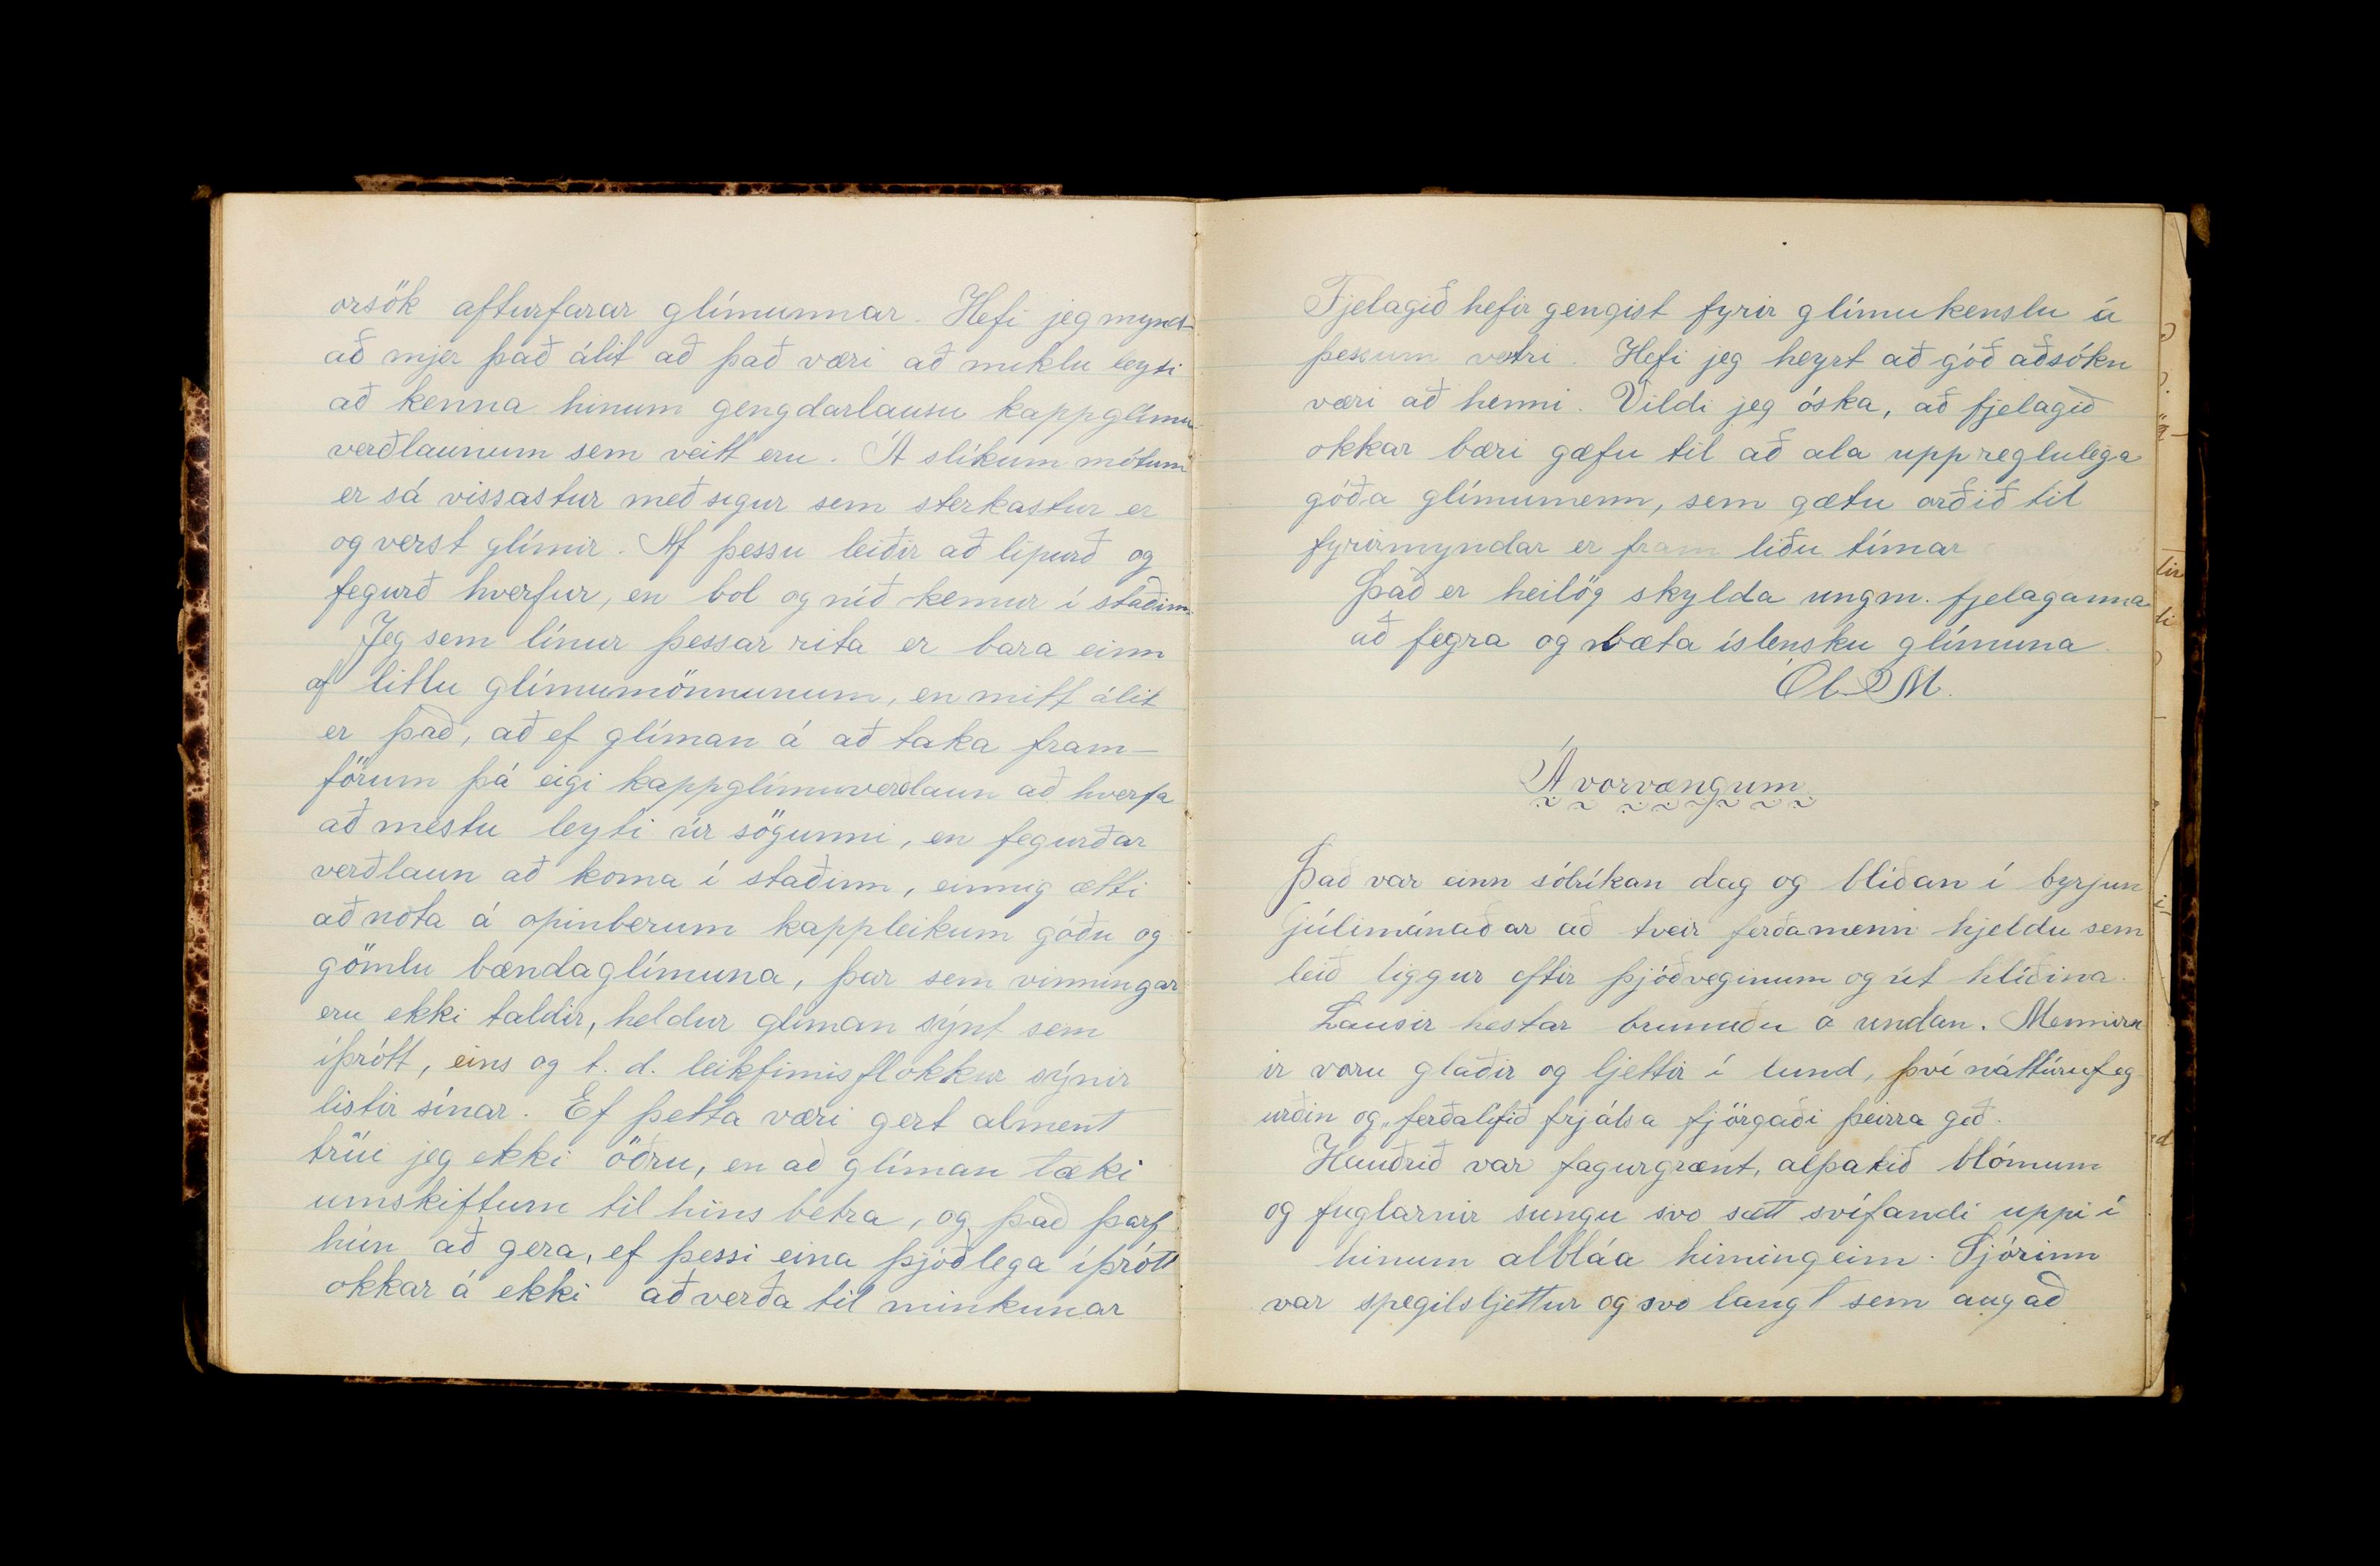 orsök afturfarar glímunnar. Hefi jeg mynd-
að mjer það álit að það væri að miklu leyti
að kenna hinum gengdarlausu kappglímu
verðlaunum sem veitt eru. Á slíkum mótum
er sá vissastur með sigur sem sterkastur er
og verst glímir. Af þessu leiðir að lipurð og
fegurð hverfur, en bol og níð kemur í staðinn.
Jeg sem línur þessar rita er bara einn
af litlu glímumönnunum, en mitt álit
er það, að ef glíman á að taka fram-
förum þá eigi kappglímuverðlaun að hverfa
að mestu leyti úr sögunni, en fegurðar
verðlaun að koma í staðinn, einnig ætti
að nota á opinberum kappleikum góðu og
gömlu bændaglímuna, þar sem vinningar
eru ekki taldir, heldur glíman sýnt sem
íþrótt, eins og t. d. leikfimisflokkur sýnir
listir sínar. Ef þetta væri gert alment
trúi jeg ekki öðru, en að glíman tæki
umskiftum til hins betra, og það þarf
hún að gera, ef þessi eina þjóðlega íþrótt
okkar á ekki að verða til minkunar
Fjelagið hefir gengist fyrir glímukenslu á
þessum vetri. Hefi jeg heyrt að góð aðsókn
væri að henni. Vildi jeg óska, að fjelagið
okkar bæri gæfu til að ala upp reglulega
góða glímumenn, sem gætu orðið til
fyrirmyndar er fram liðu tímar
Það er heilög skylda ungm. fjelaganna
að fegra og bæta íslensku glímuna.
Ól. M.
Á vorvængum
Það var einn sólríkan dag og blíðan í byrjun
júlímánaðar að tveir ferðamenn hjeldu sem
leið liggur eftir þjóðveginum og út hlíðina.
Lausir hestar brunuðu á undan. Mennirn
ir voru glaðir og ljettir í lund, því náttúrufeg
urðin og ferðalífið frjálsa fjörgaði þeirra geð.
Hauðrið var fagurgrænt, alþakið blómum
og fuglarnir sungu svo sætt svífandi uppi í
hinum albláa himingeim. Sjórinn
var spegilsljettur og svo langt sem augað